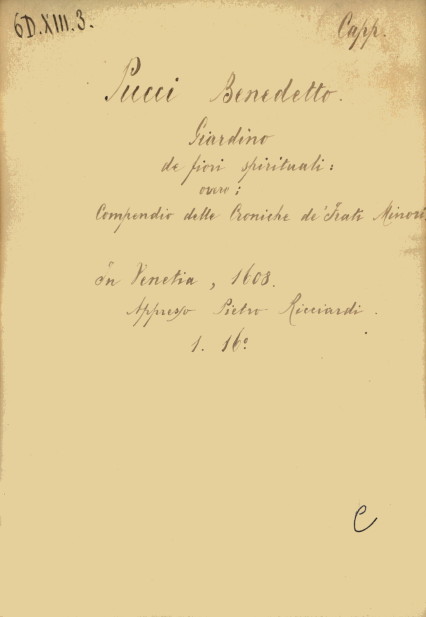 6D.XIII.3.
Capp.
Pucci Benedetto.
Giardino
de fiori spirituali:
overo:
Compendio delle Croniche de' Frati Minori,
In Venetia, 1608.
Appresso Pietro Ricciardi.
1. 16º
C